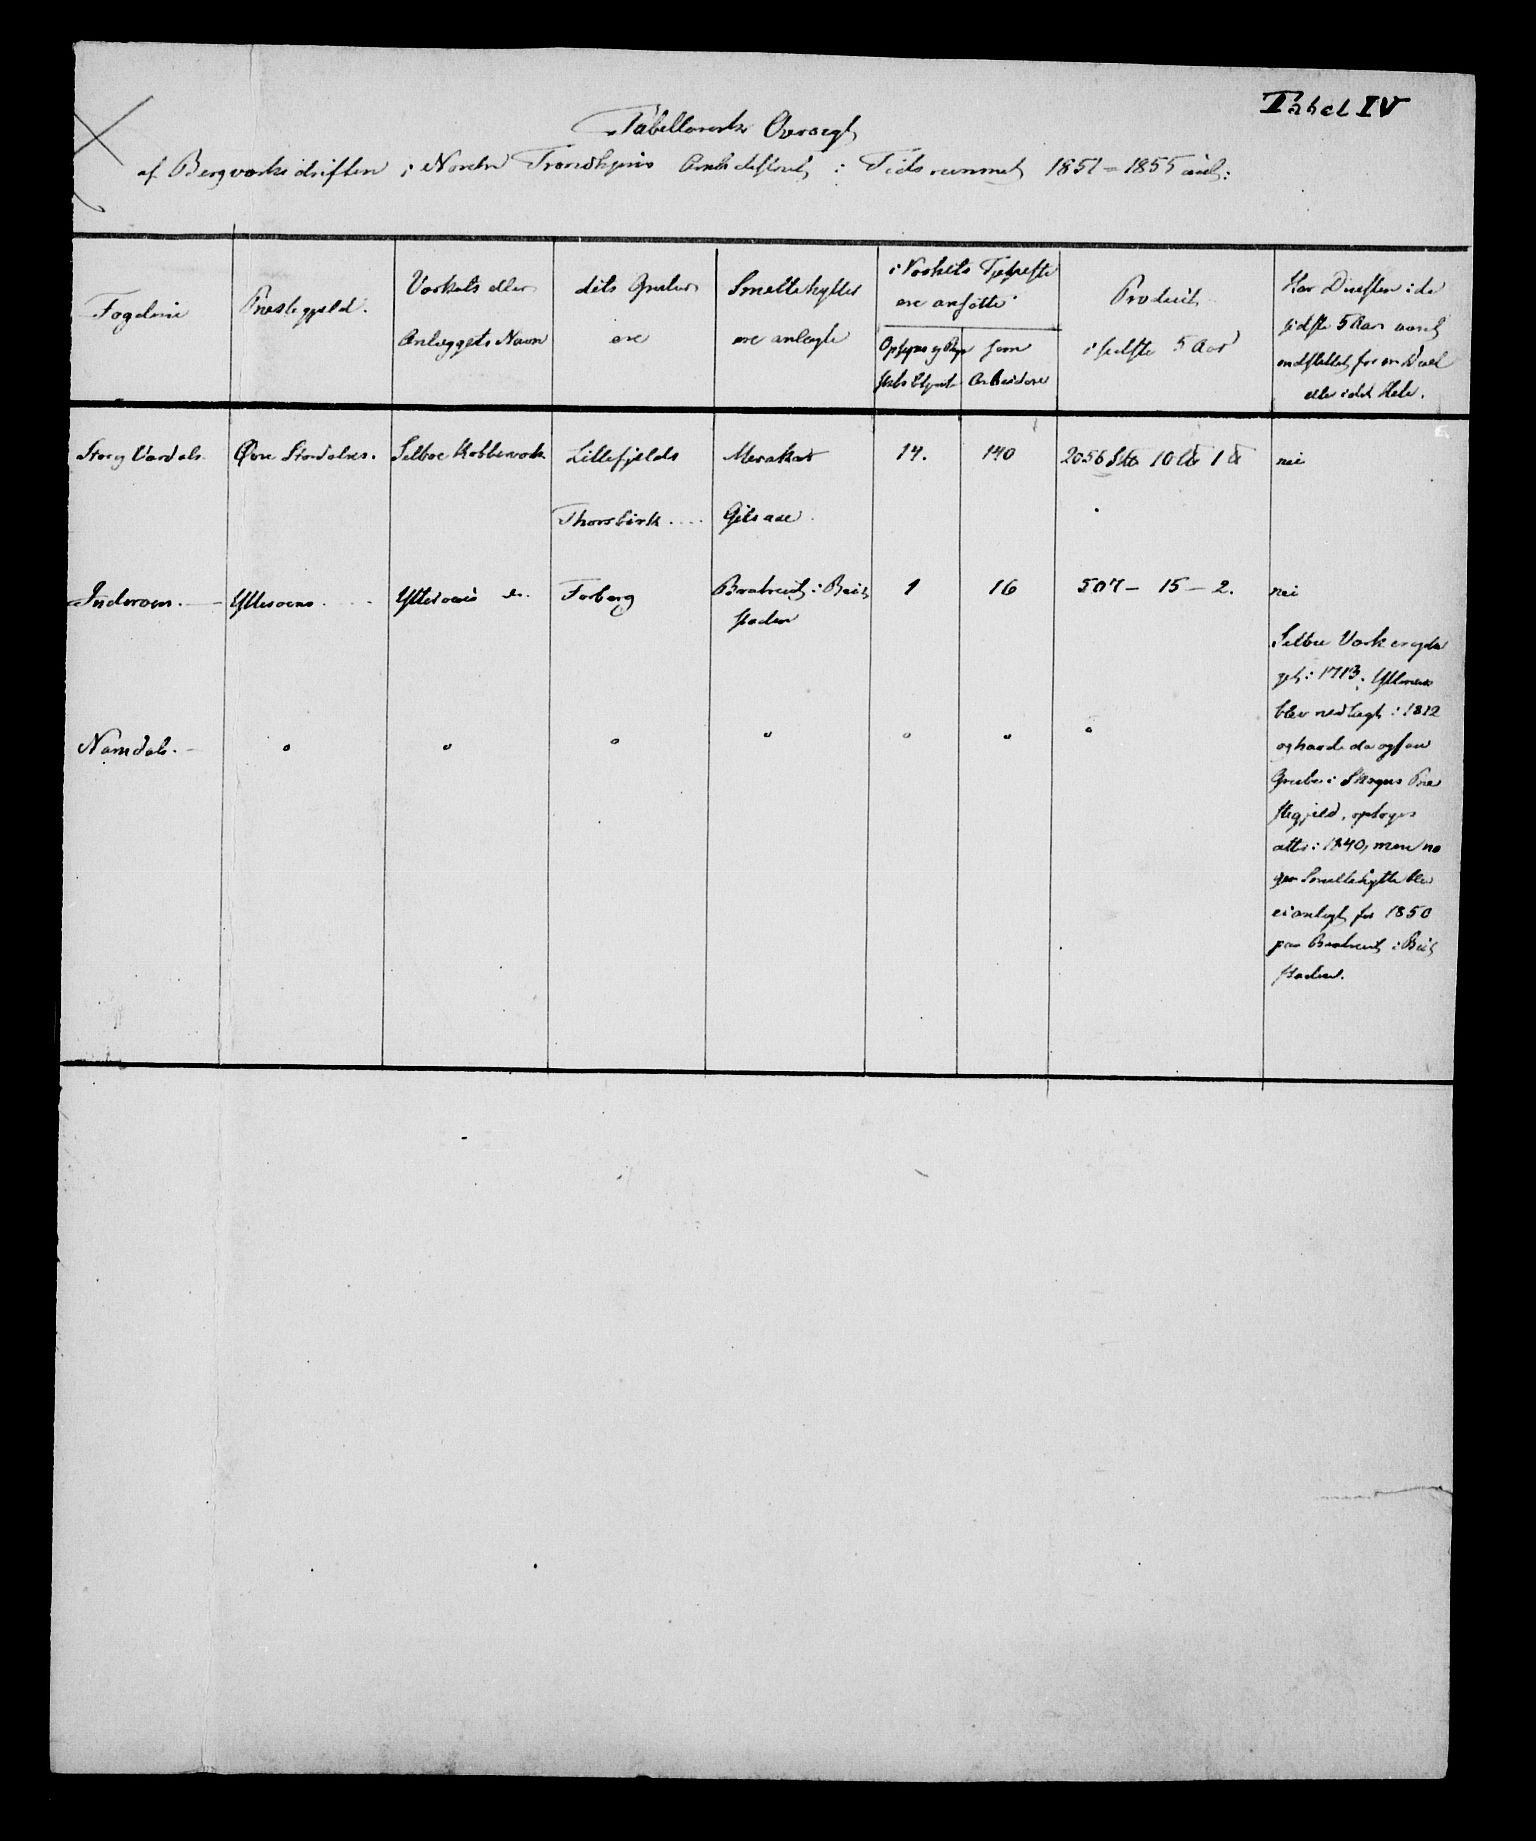 Tabel IV
Tabellarisk Oversigt
af Bergverksdriften i Nordre Trondhjems Amtsdistrict i Tidsrummet 1851 = 1855 incl:
Fogderie
Præstegjeld.
Værkets eller
Anlæggets Navn
dets Gruber
ere
Smeltehytter
ere anlagte
i Værkets Tjeneste
ere ansatte
som
Arbeidere
Product
i sidste 5 Aar
Har Driften i de
sidste 5 Aar været
indstillet for en Deel
eller i det Hele.
Stør og Værdals Øvre Størdalens. Selboe Kobberværk Lillefjelds Meraker 14. 140 2056 S℔ 10 L℔ 1 ℔ nei
Thorsbirk .... Gilsaae
Inderøens. — Ytterøens .... Ytterøens do. Forberg Bratreit i Beit 1 16 507 — 15 — 2. nei
staden
Selbu Værk er opta
get i 1713; Ytterøens
blev nedlagt i 1812
og havde da ogsaa
Grube i Skogns Præ
stegjeld, optoges
atter i 1840, men no
gen Smeltehytte blev
ei anlagt før 1850
paa Bratreit i Beit
staden.
Namdals. — " " " " " " "